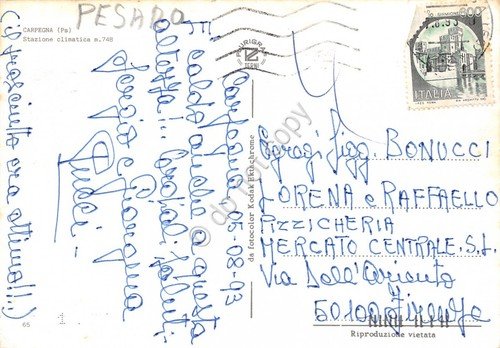 PESARO
CARPEGNA (Ps)
Stazione climatica m. 748
Carpegna 05-08-93
Fa caldo anche a questa
altezza!!! Cordiali saluti
Giorgio e Gianna
(il prosciutto era ottimo!!!)
da fotocolor Kodak Ektachrome
Egregi Sigg. BONUCCI
LORENA e RAFFAELLO
PIZZICHERIA
MERCATO CENTRALE S.L.
Via Dell'Ariento
50100 Firenze
Riproduzione vietata
65
ITALIA
TERNI